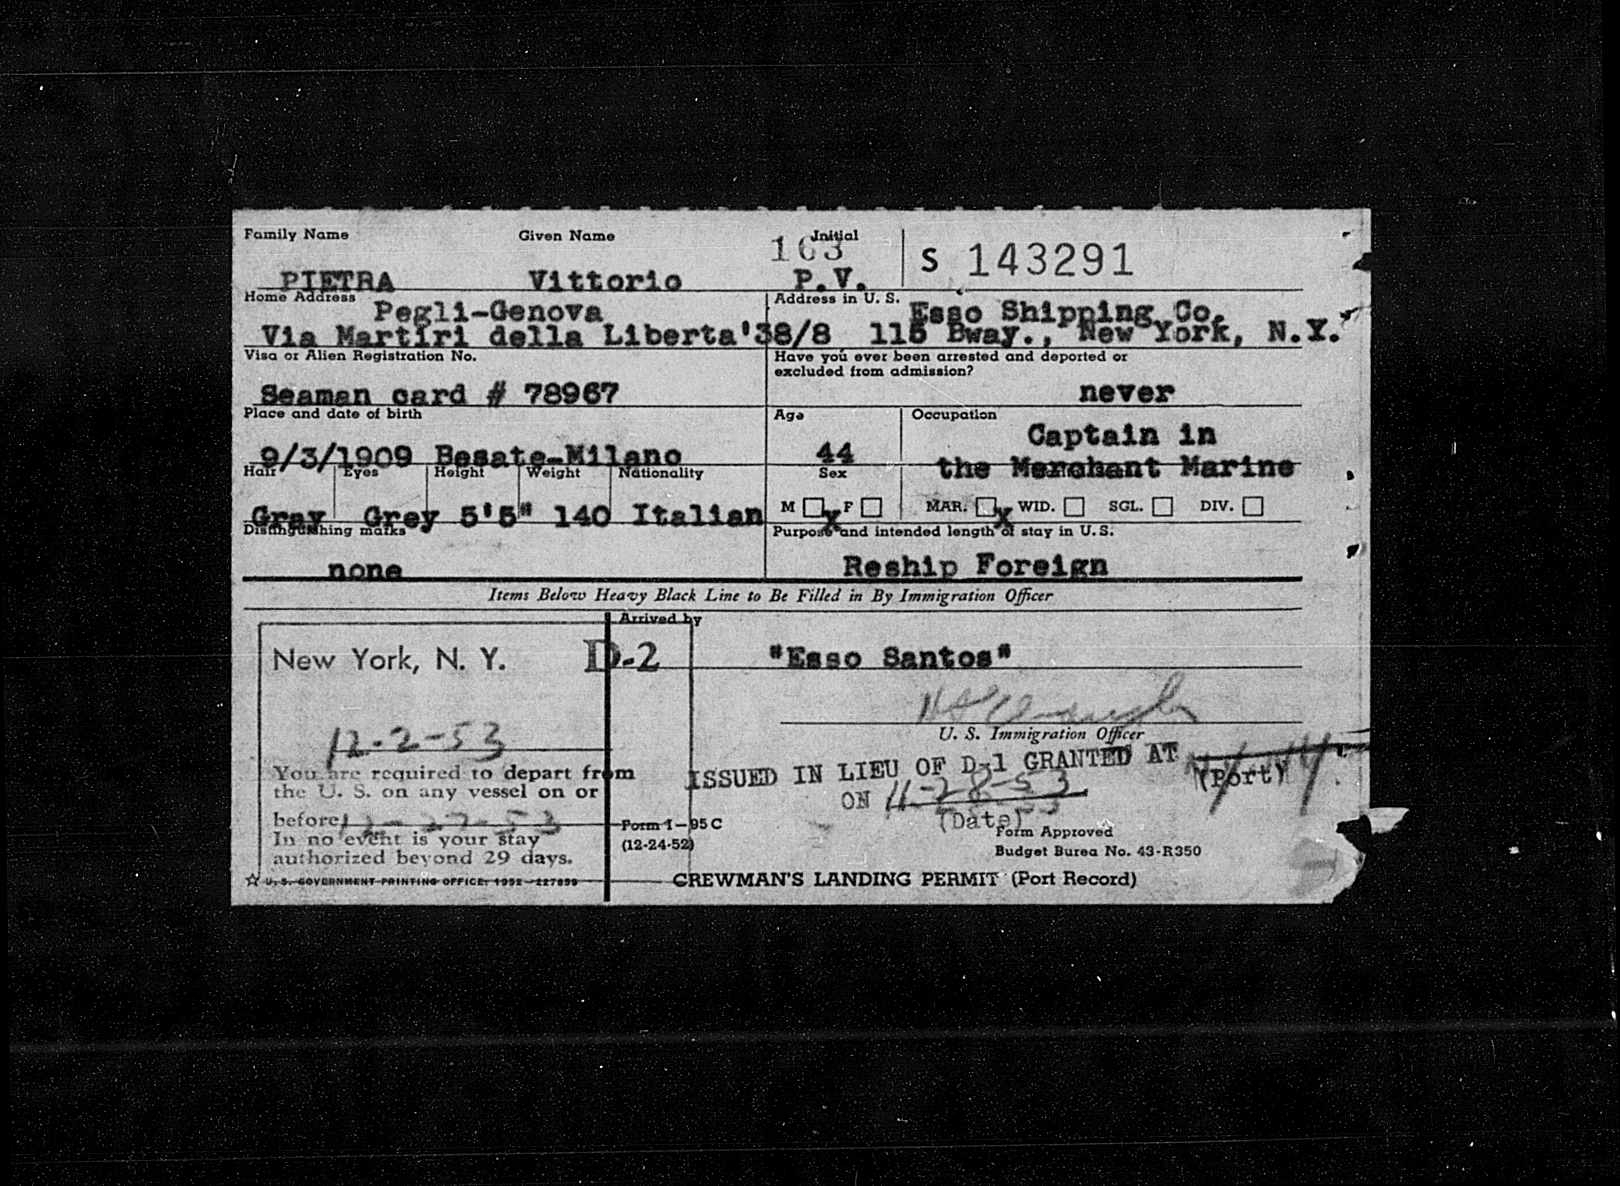 Family Name Given Name Initial
163
S 143291
PIETRA Vittorio P.V.
Home Address Address in U. S.
Pegli-Genova Esso Shipping Co.
Via Martiri della Liberta'38/8 115 Bway., New York, N.Y.
Visa or Alien Registration No. Have you ever been arrested and deported or
excluded from admission?
Seaman card # 78967 never
Place and date of birth Age Occupation
9/3/1909 Besate-Milano 44 Captain in
the Merchant Marine
Hair Eyes Height Weight Nationality Sex
Gray Grey 5'5" 140 Italian M x F MAR. x WID. SGL. DIV.
Distinguishing marks Purpose and intended length of stay in U.S.
none Reship Foreign
Items Below Heavy Black Line to Be Filled in By Immigration Officer
Arrived by
New York, N. Y. D-2 "Esso Santos"
12-2-53
U. S. Immigration Officer
You are required to depart from
the U. S. on any vessel on or
before 12-27-53
In no event is your stay
authorized beyond 29 days.
ISSUED IN LIEU OF D-1 GRANTED AT N Y N Y
(Port)
ON 11-28-53
(Date)
Form I-95C
(12-24-52)
Form Approved
Budget Burea No. 43-R350
☆ U. S. GOVERNMENT PRINTING OFFICE: 1952-227899
CREWMAN'S LANDING PERMIT (Port Record)